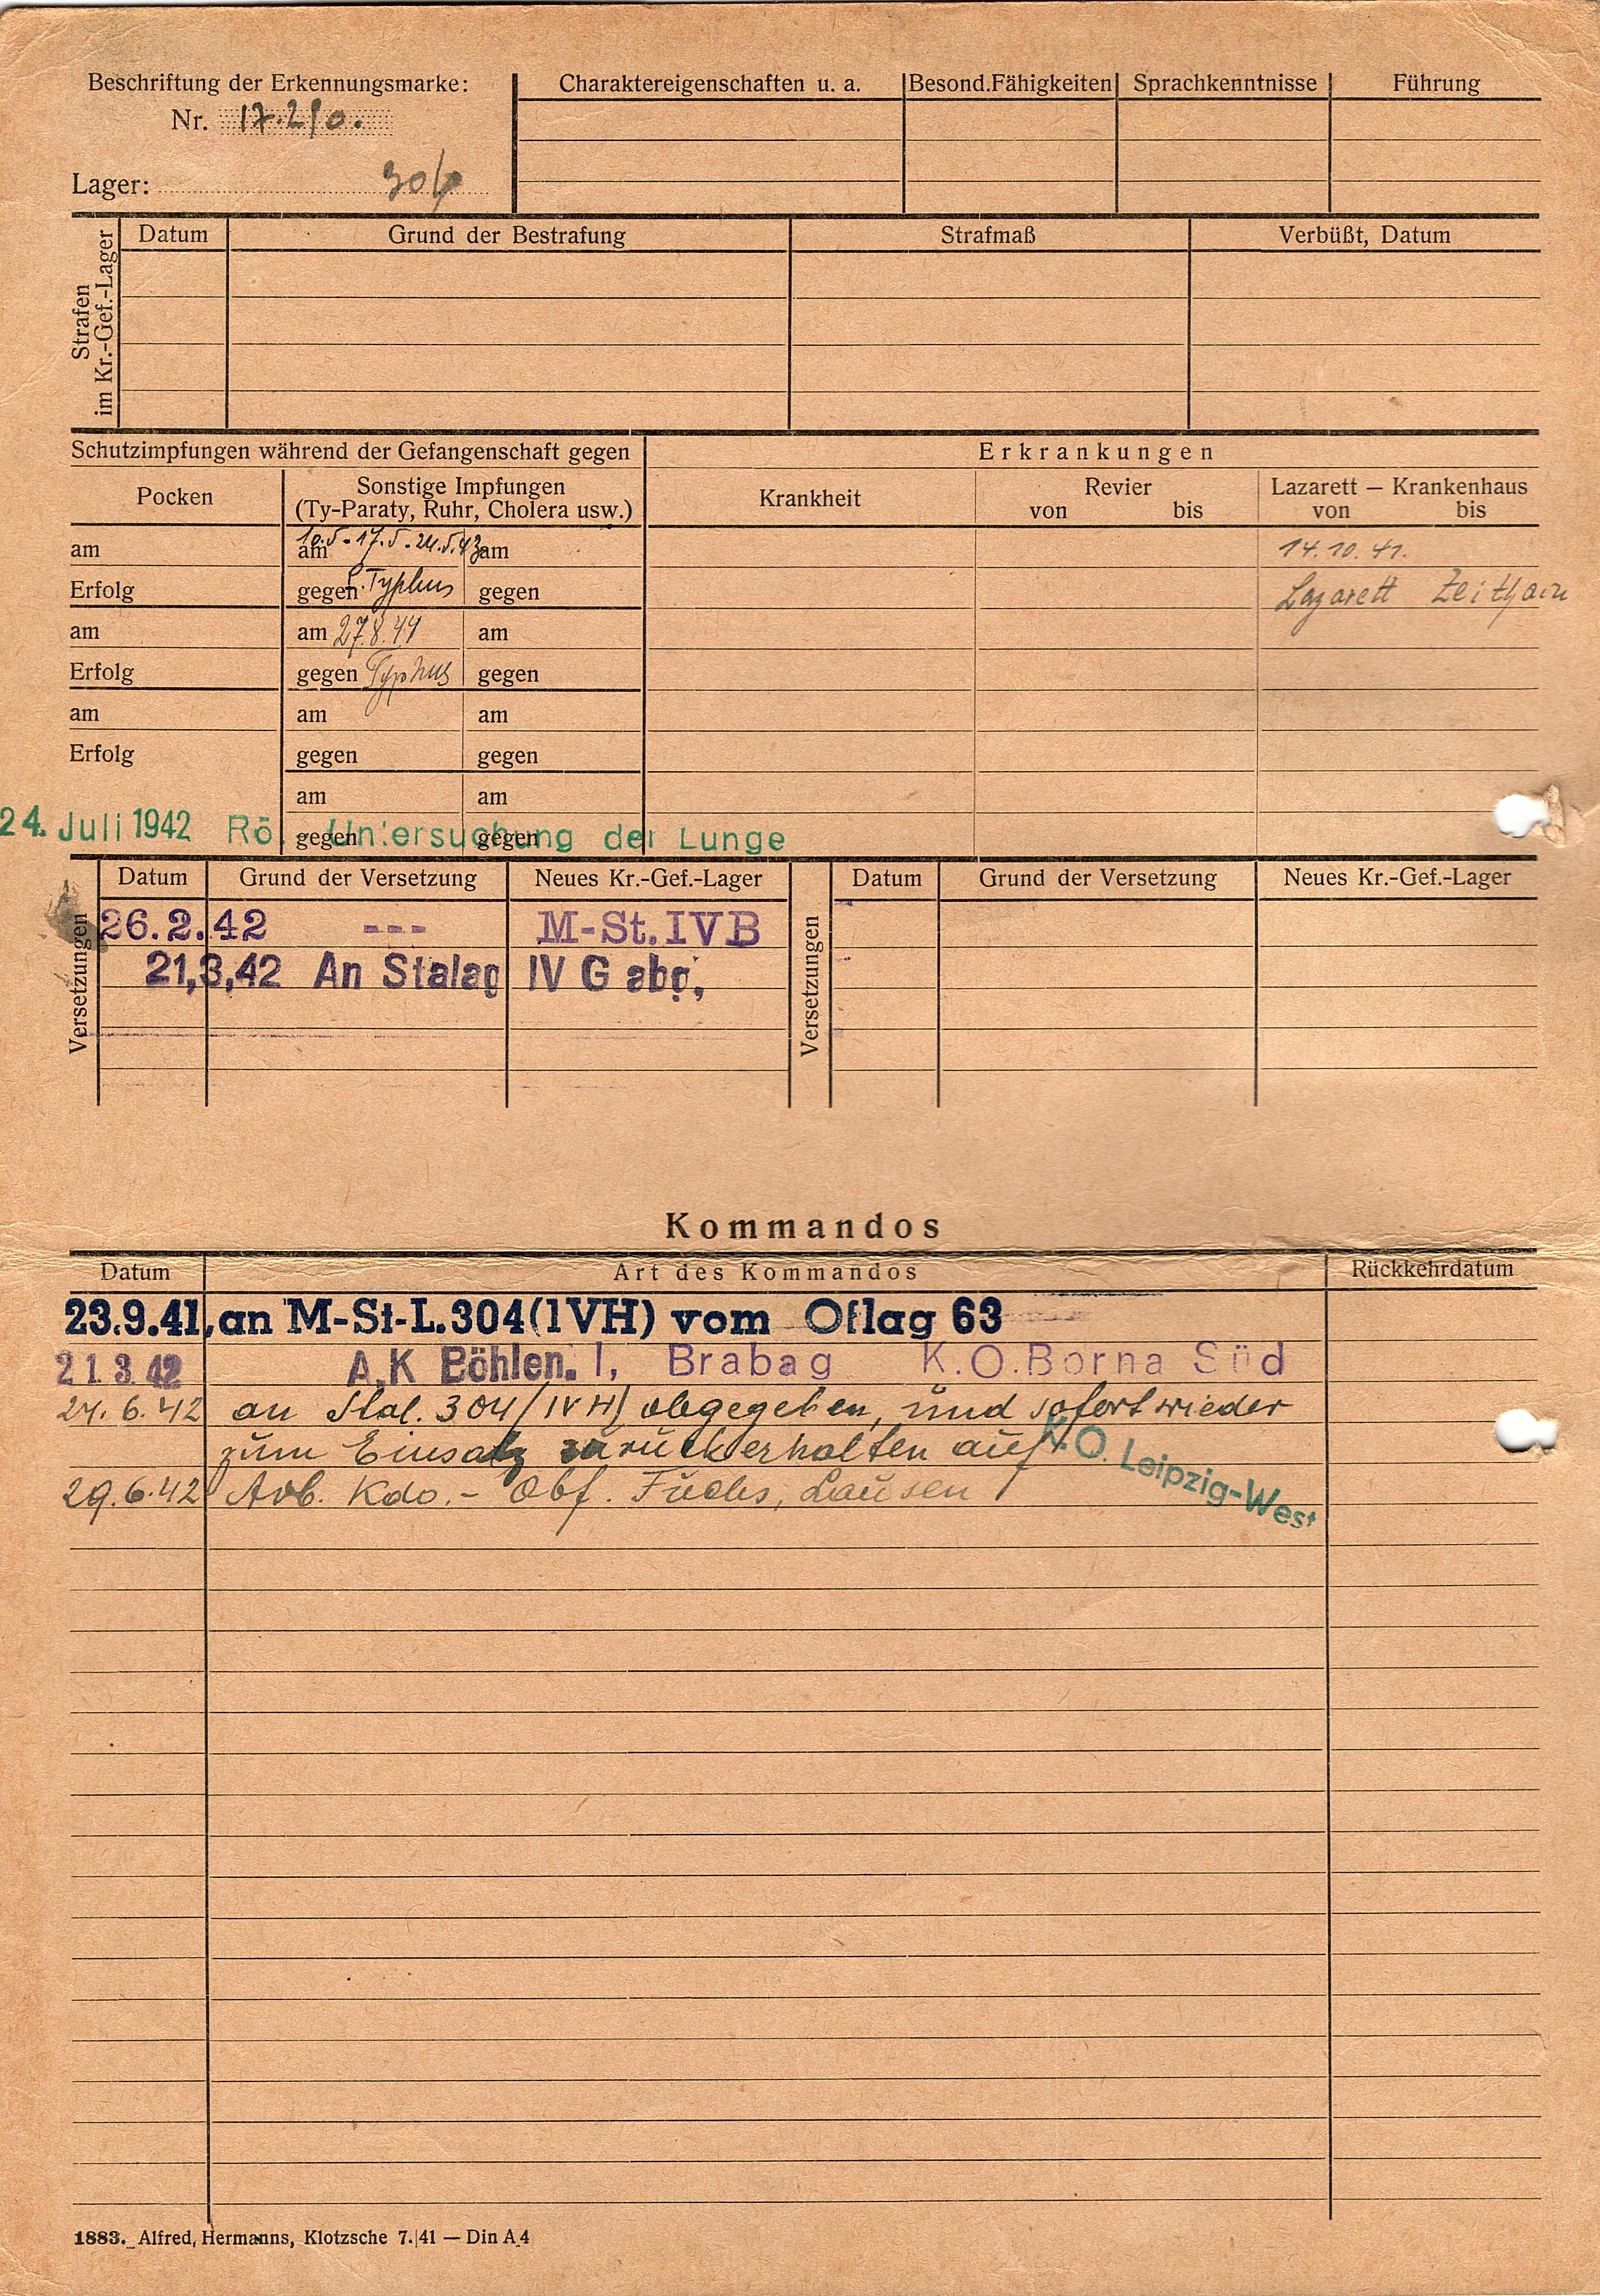 Beschriftung der Erkennungsmarke:
Nr. 17.210.
Lager: 304
Charaktereigenschaften u. a.
Besond.Fähigkeiten
Sprachkenntnisse
Führung
Strafen
im Kr.-Gef.-Lager
Datum
Grund der Bestrafung
Strafmaß
Verbüßt, Datum
Schutzimpfungen während der Gefangenschaft gegen
Erkrankungen
Pocken
Sonstige Impfungen
(Ty-Paraty, Ruhr, Cholera usw.)
Krankheit
Revier
von bis
Lazarett — Krankenhaus
von bis
am
am 10.5-17.5-24.5.43
am
14.10.41.
Erfolg
gegen Typhus
gegen
Lazarett Zeithain
am
am 27.8.44
am
Erfolg
gegen Typhus
gegen
am
am
am
Erfolg
gegen
gegen
am
am
gegen
gegen
24. Juli 1942 Rö.-Untersuchung der Lunge
Versetzungen
Datum
Grund der Versetzung
Neues Kr.-Gef.-Lager
Versetzungen
Datum
Grund der Versetzung
Neues Kr.-Gef.-Lager
26.2.42 --- M-St.IVB
21,3,42 An Stalag IV G abg,
Kommandos
Datum
Art des Kommandos
Rückkehrdatum
23.9.41, an M-St-L.304(IVH) vom Oflag 63
21.3.42 A,K Böhlen. I, Brabag K.O.Borna Süd
24.6.42 an Stal. 304/IVH/ abgegeben, und sofort wieder
zum Einsatz zurückerhalten auf
K.O. Leipzig-West
29.6.42 Arb. Kdo.- Obf. Fuchs, Lausen
1883. Alfred Hermanns, Klotzsche 7. 41 — Din A 4